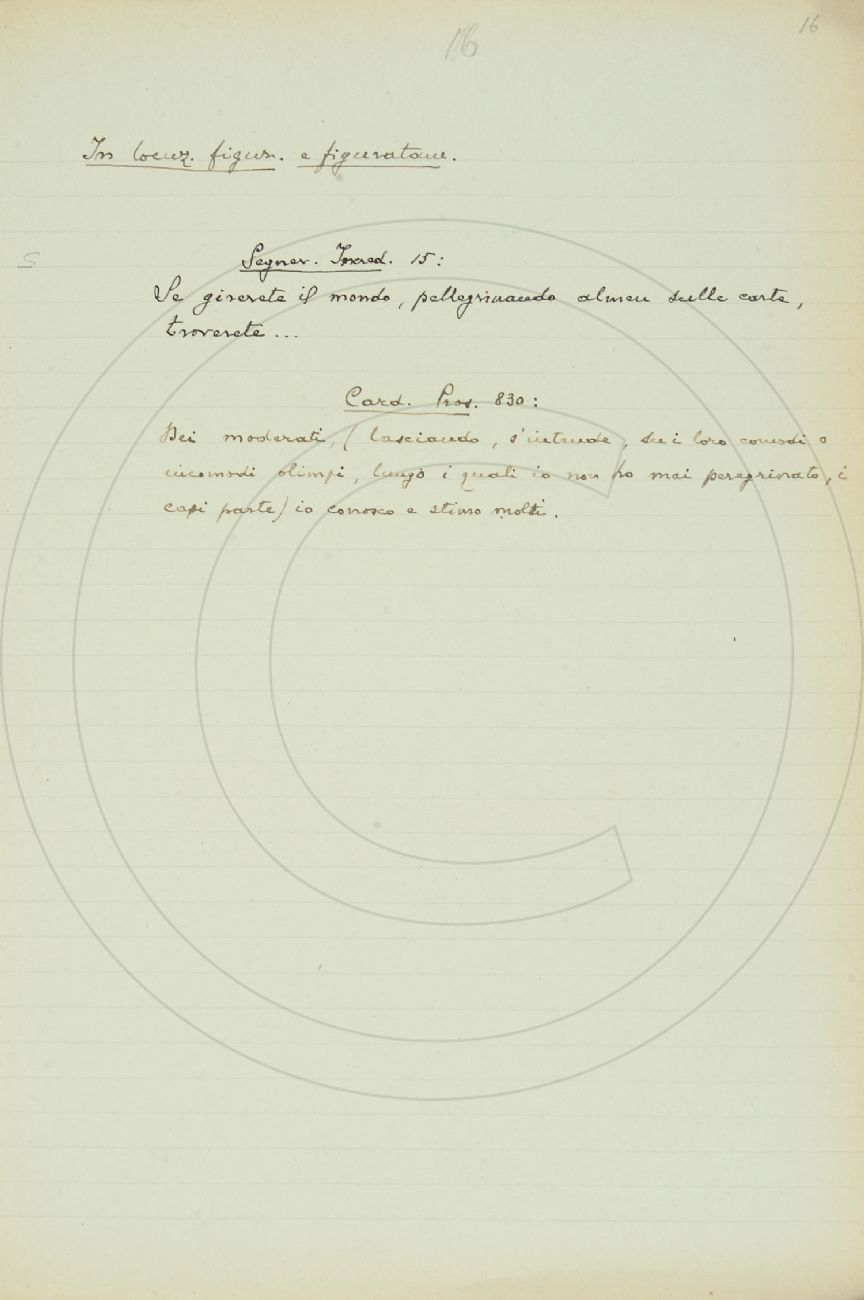 16
16
In locuz. figur. e figuratam.
S
Segner. Incred. 15:
Se girerete il mondo, pellegrinando almen sulle carte,
troverete...
Card. Pros. 830:
Dei moderati, (lasciando, s'intende, su i loro comodi o
incomodi olimpi, lungo i quali io non ho mai peregrinato, i
capi parte) io conosco e stimo molti.